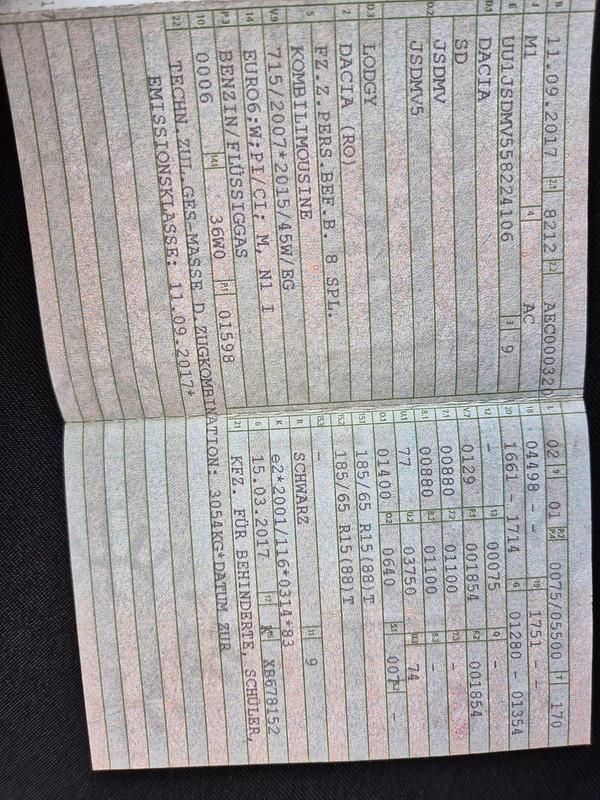 B 11.09.2017 2.1 8212 2.2 AEC000320
J M1 4 AC
E UU1JSDMV558224106 3 9
D.1 DACIA
SD
D.2 JSDMV
JSDMV5
D.3 LODGY
2 DACIA (RO)
5 FZ.Z.PERS.BEF.B. 8 SPL.
KOMBILIMOUSINE
V.9 715/2007*2015/45W/EG
14 EURO6;W;PI/CI; M, N1 I
P.3 BENZIN/FLÜSSIGGAS
10 0006 14.1 36W0 P.1 01598
22 TECHN.ZUL.GES-MASSE D.ZUGKOMBINATION: 3054KG*DATUM ZUR
EMISSIONSKLASSE: 11.09.2017*
L 02 9 01 P.2 P.4 0075/05500 T 170
18 04498 - - 19 1751 - -
20 1661 - 1714 G 01280 - 01354
12 - 13 00075 Q -
V.7 0129 F.1 001854 F.2 001854
7.1 00880 7.2 01100 7.3 -
8.1 00880 8.2 01100 8.3 -
U.1 77 U.2 03750 U.3 74
O.1 01400 O.2 0640 S.1 007 S.2 -
15.1 185/65 R15(88)T
15.2 185/65 R15(88)T
15.3 -
R SCHWARZ 11 9
K e2*2001/116*0314*83
6 15.03.2017 17 K 16 XB678152
21 KFZ. FÜR BEHINDERTE, SCHÜLER,